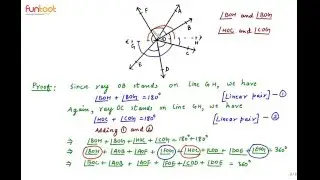 Funtoot
F
A
B
E
G
H
C
D
∠BOH and ∠BOG
∠HOC and ∠COG
Proof:- Since ray OB stands on line GH, we have
∠BOH + ∠BOG = 180° [Linear pair] - ①
Again, ray OC stands on line GH, we have
∠HOC + ∠COG = 180° [Linear pair] - ②
Adding ① and ②
⇒ ∠BOH + ∠BOG + ∠HOC + ∠COG = 180° + 180°
⇒ ∠BOH + ∠AOB + ∠AOF + ∠FOG + ∠HOC + ∠COD + ∠DOE + ∠EOG = 360°
⇒ ∠BOC + ∠AOB + ∠AOF + ∠EOF + ∠COD + ∠DOE = 360°